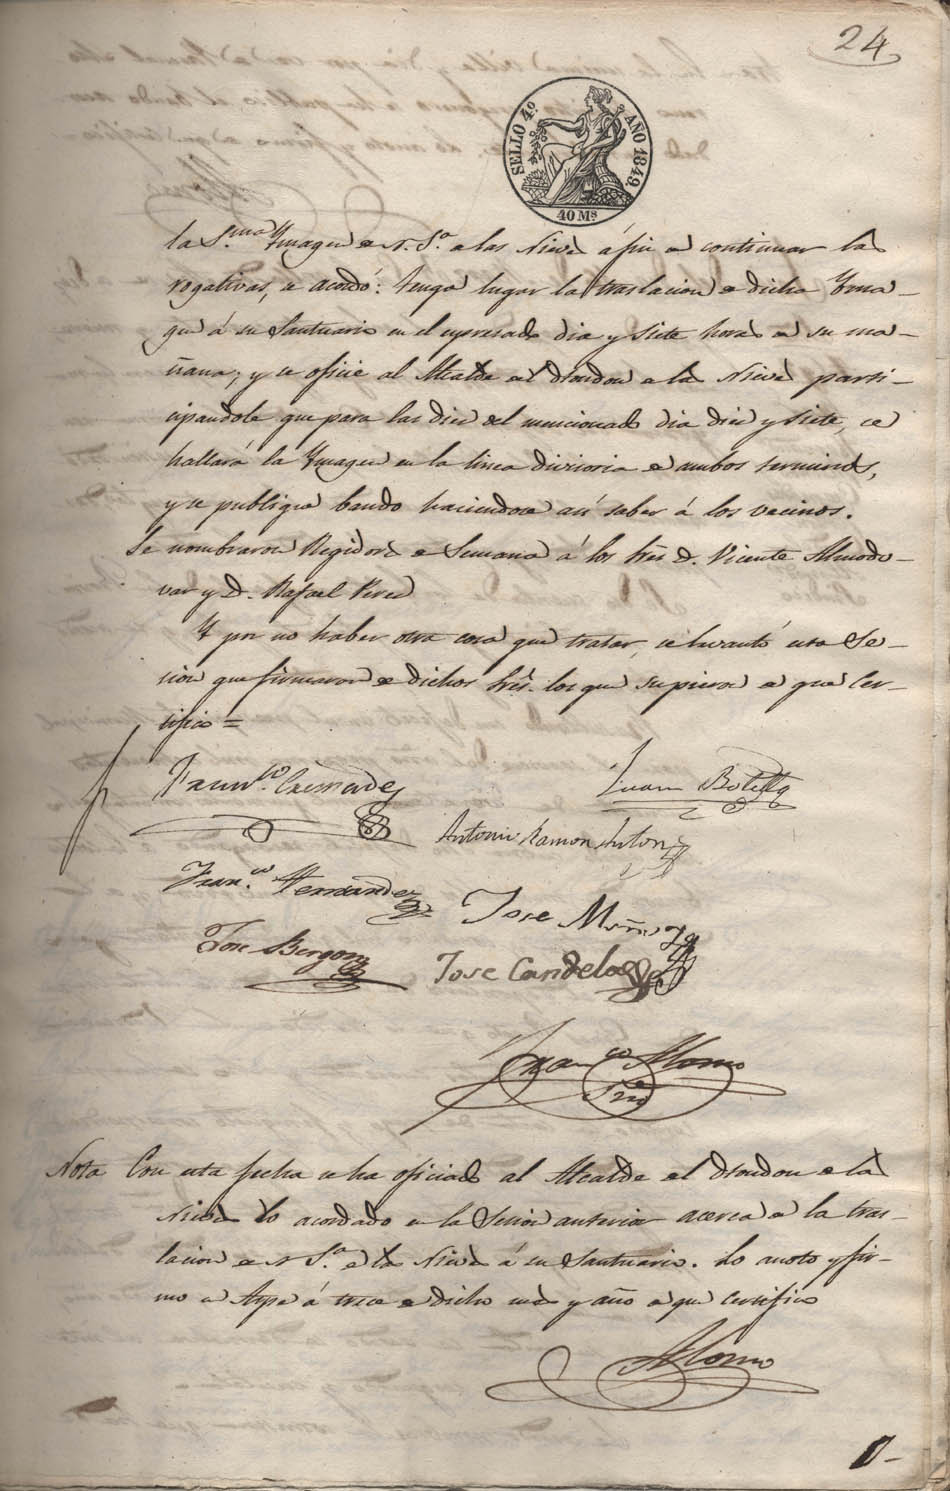 24
SELLO 4º AÑO 1849
40 Ms
la S.ma Ymagen de N. S.a de las Nieves á fin de continuar las
rogativas, se acordó: tenga lugar la traslacion de dicha Yma-
gen á su Santuario en el espresado dia y siete horas de su ma-
ñana; y se oficie al Alcalde del Hondon de las Nieves parti-
cipandole que para las diez del mencionado dia diez y siete, se
hallará la Ymagen en la linea divisoria de ambos terminos,
y se publique bando haciendose asi saber á los vecinos.
Se nombraron Regidores de Semana á los Sres D. Vicente Almodo-
var y D. Rafael Perez
Y por no haber otra cosa que tratar, se levantó esta Se-
sion que firmaron de dichos Sres. los que supieron de que Cer-
tifico =
Fran.co Cremades
Juan Botella
Antonio Ramon Anton
Fran.co Hernandez
Jose Muñoz
Jose Bergon
Jose Candela
Fran.co Alonso
Srio
Nota Con esta fecha se ha oficiado al Alcalde del Hondon de las
Nieves lo acordado en la Sesion anterior acerca de la tras-
lacion de N. S.a de las Nieves á su Santuario. Lo anoto y fir-
mo en Aspe á trece de dicho mes y año de que certifico
Alonso